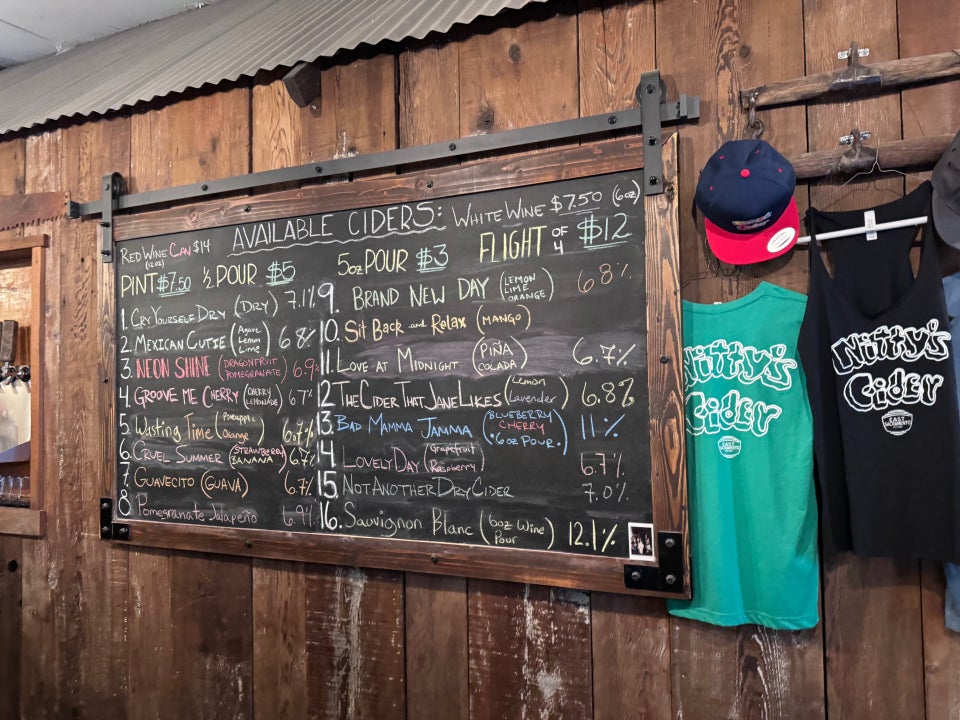 AVAILABLE CIDERS:
WHITE WINE $7.50 (6oz)
RED WINE CAN $14
(12oz)
PINT $7.50 ½ POUR $5
5oz POUR $3
FLIGHT OF 4 $12
1. CRY YOURSELF DRY (DRY) 7.1%
2. MEXICAN CUTIE (Agave Lemon Lime) 6.8%
3. NEON SHINE (DRAGONFRUIT POMEGRANATE) 6.9%
4. GROOVE ME CHERRY (CHERRY LEMONADE) 6.7%
5. Wasting Time (Pineapple Orange) 6.7%
6. CRUEL SUMMER (STRAWBERRY BANANA) 6.7%
7. GUAVECITO (GUAVA) 6.7%
8. Pomegranate Jalapeño 6.9%
9. BRAND NEW DAY (LEMON LIME ORANGE) 6.8%
10. Sit Back and Relax (MANGO)
11. LOVE AT MIDNIGHT (PIÑA COLADA) 6.7%
12. THE CIDER THAT JANE LIKES (Lemon Lavender) 6.8%
13. BAD MAMMA JAMMA (BLUEBERRY CHERRY • 6oz POUR •) 11%
14. LOVELY DAY (Grapefruit Raspberry) 6.7%
15. NOT ANOTHER DRY CIDER 7.0%
16. Sauvignon Blanc (6oz Wine Pour) 12.1%
Nitty's
Cidey
EAST
SACRAMENTO
Nitty's
Cidey
EAST
SACRAMENTO